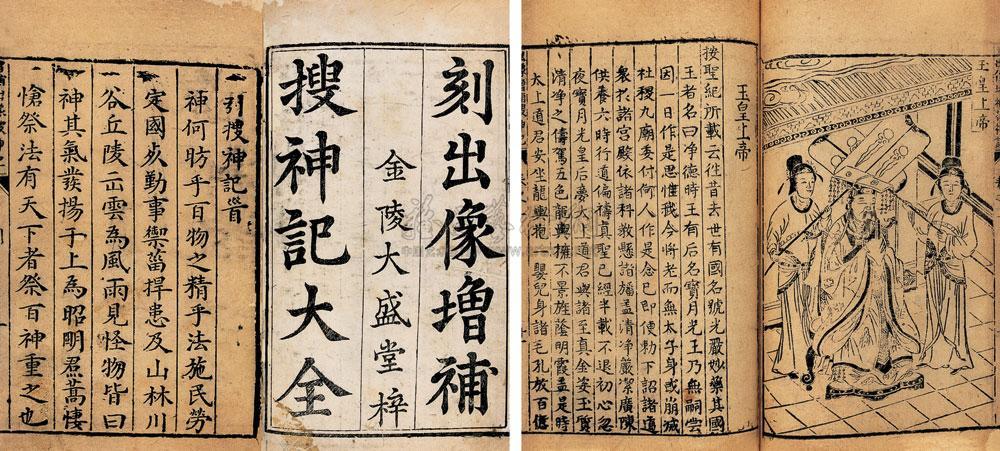 刻出像增補
搜神記大全
金陵大盛堂梓
引搜神記首
神何昉乎百物之精乎法施民勞
定國死勤事禦菑捍患及山林川
谷丘陵出雲為風雨見怪物皆曰
神其氣發揚于上為昭明焄蒿悽
愴祭法有天下者祭百神重之也
玉皇上帝
玉皇上帝
按聖紀所載云往昔去世有國名號光嚴妙樂其國
王者名曰净德時王有后名寶月光王乃無嗣嘗
因一日作是思惟我今將老而無太子身或崩
社稷九廟委付何人作是念已即便勅下詔諸道
衆於諸宮殿依諸科教懸諸旛盖清净嚴潔廣陳
供養六時行道徧禱真聖已經半載不退初心忽
夜寶月光皇后夢太上道君與諸至真金姿玉質
清净之儔駕五色龍輿擁不景旌蔭明霞盖是時
太上道君安坐龍輿抱一嬰兒身諸毛孔放百億